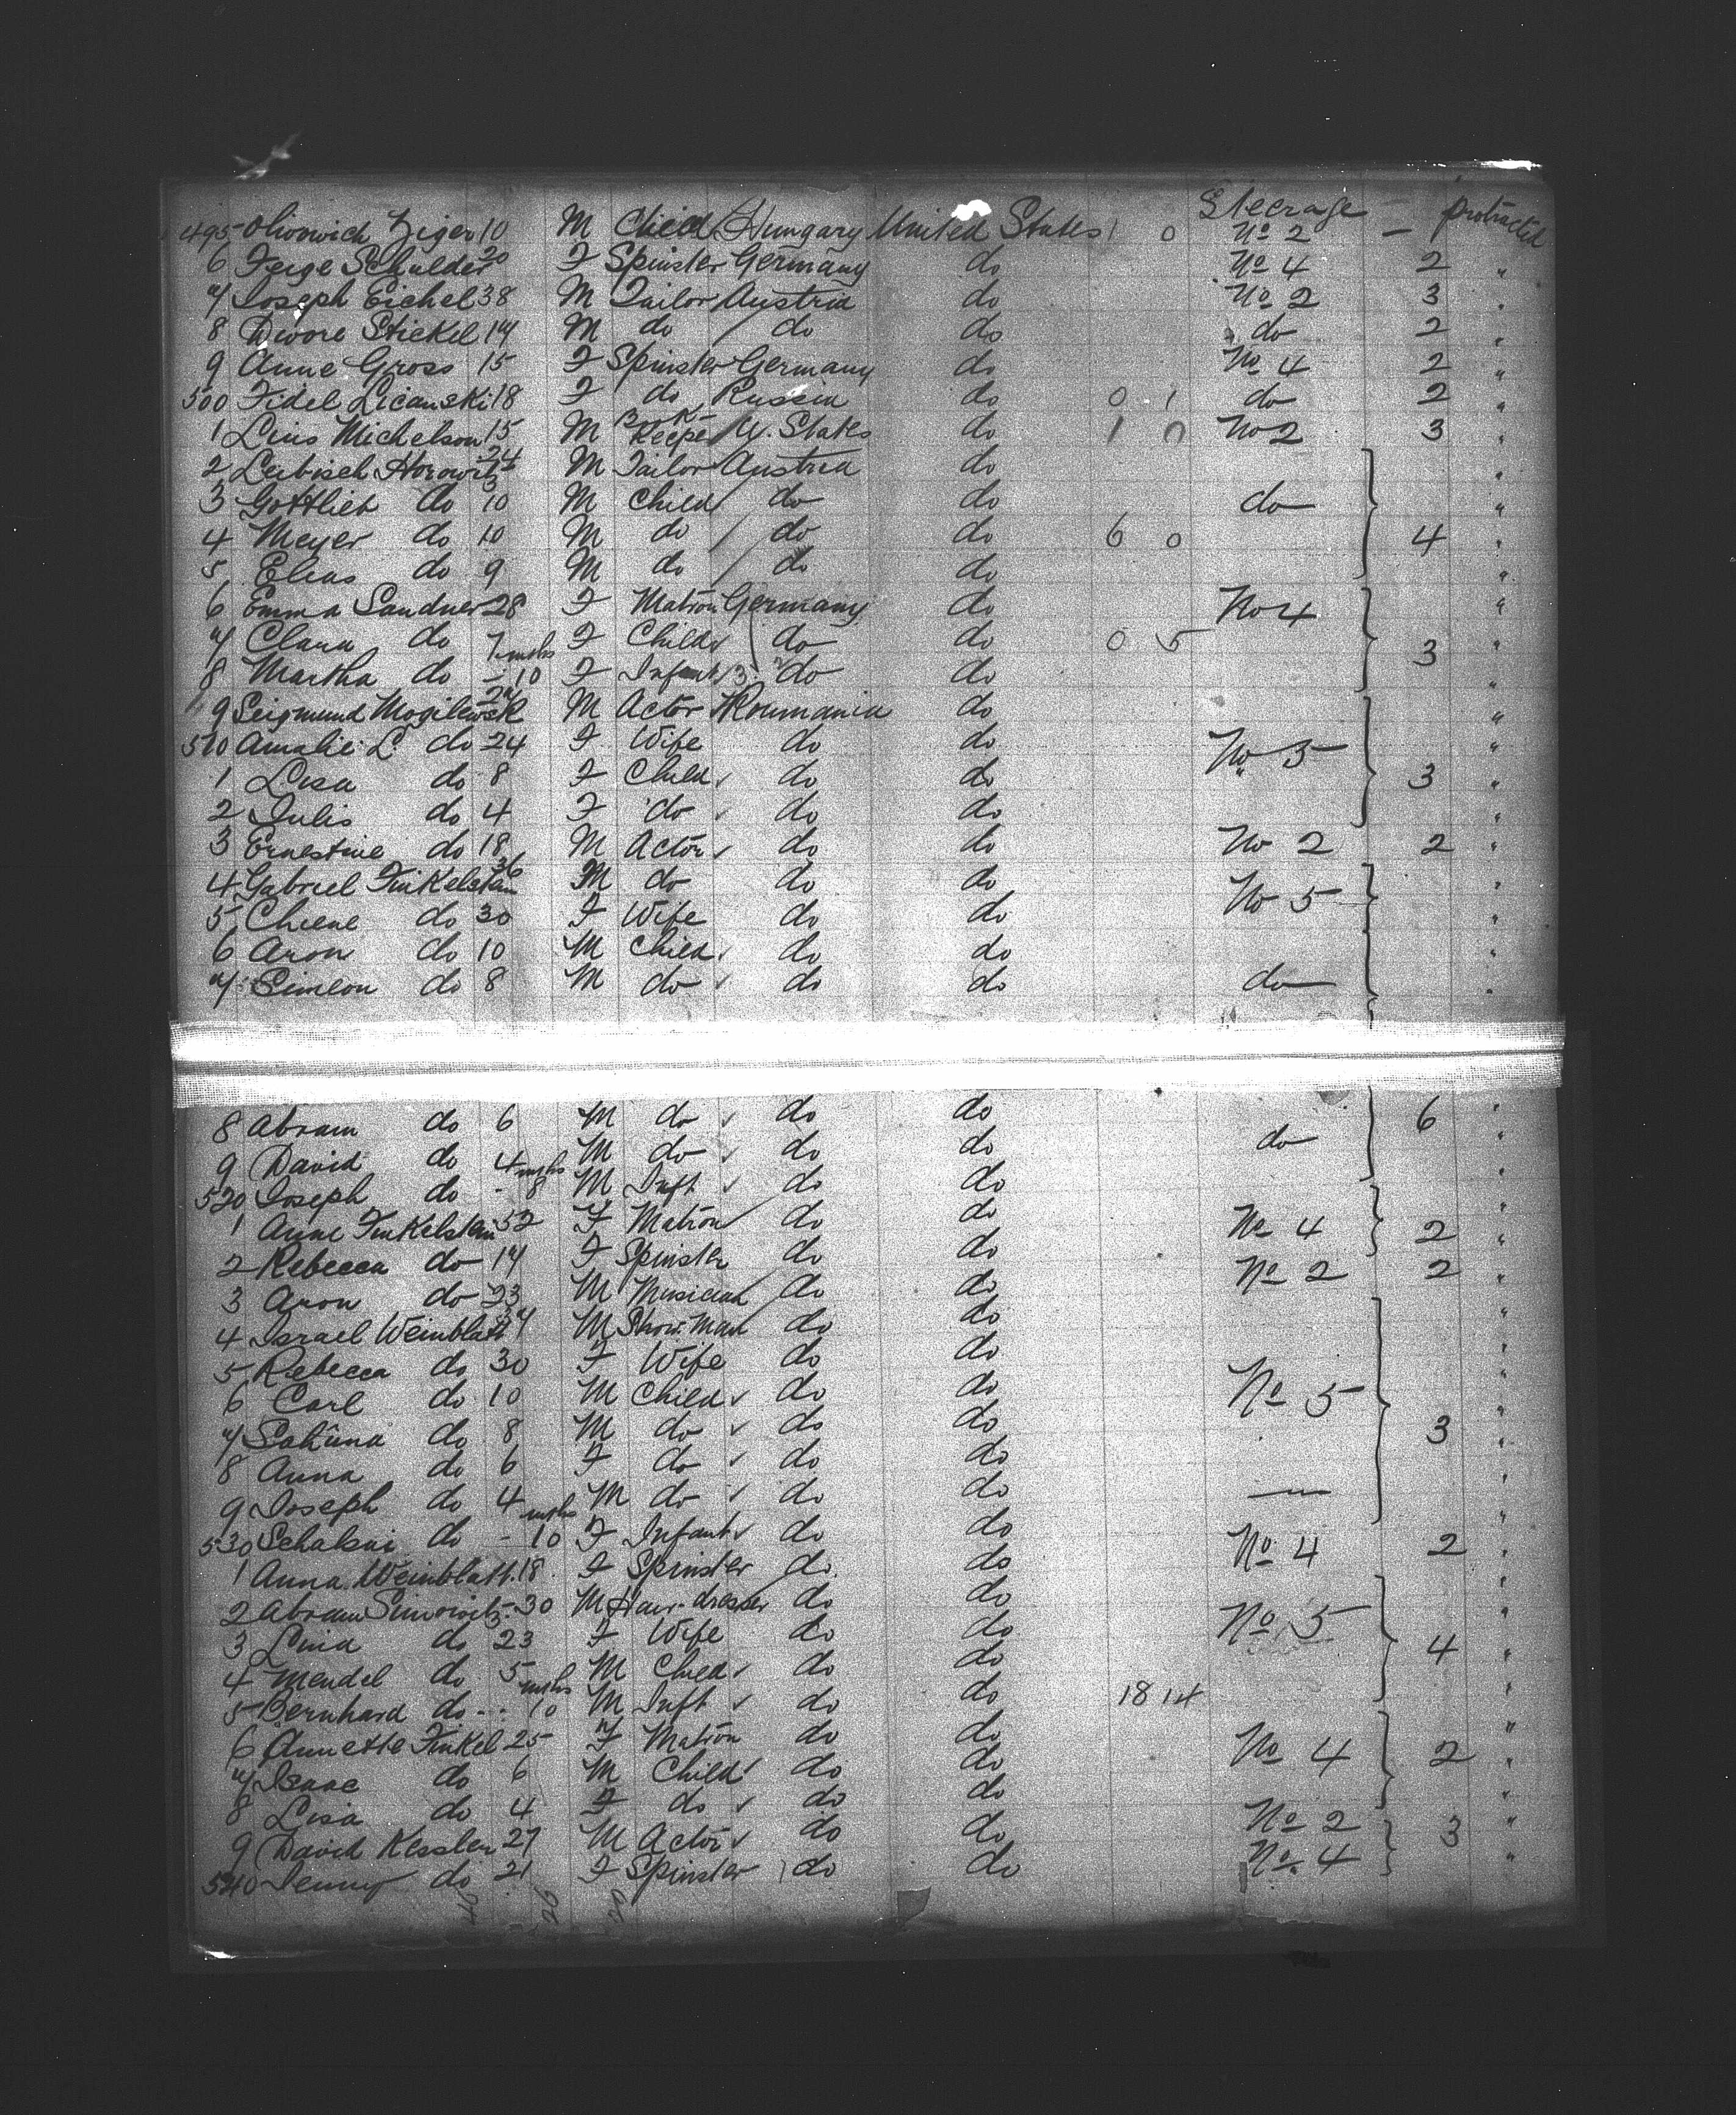 Steerage — protracted
495 Zeiger 10 M Child Hungary United States 1 0 No 2 — 1
6 Feige Schulder 20 F Spinster Germany do No 4 2 "
7 Joseph Eichel 38 M Tailor Austria do No 2 3 "
8 Dwore Stickel 17 M do do do do 2 "
9 Anne Gross 15 F Spinster Germany do No 4 2 "
500 Fidel Licanski 18 F do Russia do 0 1 do 2 "
1 Michelson 15 M Book Keeper U. States do 1 0 No 2 3 "
2 Leibisch Horowitz M Tailor Austria do "
3 Gottlieb do 10 M Child do do do "
4 Meyer do 10 M do do do 6 0 4 "
5 Elias do 9 M do do do "
6 Emma Sandner 28 F Matron Germany do No 4 "
7 Clara do F Child do do 0 5 3 "
8 Martha do mths - 10 F Infant do do "
9 Seigmund M Actor Roumania do "
510 Amalie L. do 24 F Wife do do No 5 "
1 Lisa do 8 F Child do do 3 "
2 Julis do 4 F do do do "
3 Ernestine do 18 M Actor do do No 2 2 "
4 Gabriel Finkelstein 36 M do do do No 5 "
5 Chiene do 30 F Wife do do "
6 Aron do 10 M Child do do "
7 Simeon do 8 M do do do do "
8 Abram do 6 M do do do 6 "
9 David do 4 M do do do do "
520 Joseph do mths - 8 M Inft do do "
1 Anne Finkelstein 52 F Matron do do No 4 2 "
2 Rebecca do 17 F Spinster do do "
3 Aron do 23 M Musician do do No 2 2 "
4 Israel Weinblatt 37 M Show-man do do "
5 Rebecca do 30 F Wife do do "
6 Carl do 10 M Child do do No 5 "
7 do 8 M do do do 3 "
8 Anna do 6 F do do do "
9 Joseph do 4 M do do do — "
530 do mths - 10 F Infant do do "
1 Anna Weinblatt 18 F Spinster do do No 4 2 "
2 Abram Simowitz 30 M Hair-dresser do do "
3 Lina do 23 F Wife do do No 5 "
4 Mendel do 5 M Child do do 4 "
5 Bernhard do mths - 10 M Inft do do 18 14 "
6 Annette Finkel 25 F Matron do do "
7 Isaac do 6 M Child do do No 4 2 "
8 Lisa do 4 F do do do "
9 David Kessler 27 M Actor do do No 2 3 "
540 Jenny do 21 F Spinster do do No 4 "